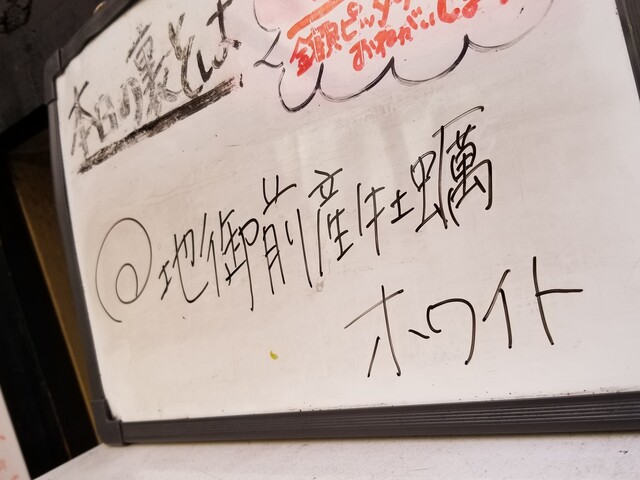 本日の裏そば
金額ピッタリ
おねがいしま
@地御前産牡蠣
ホワイト